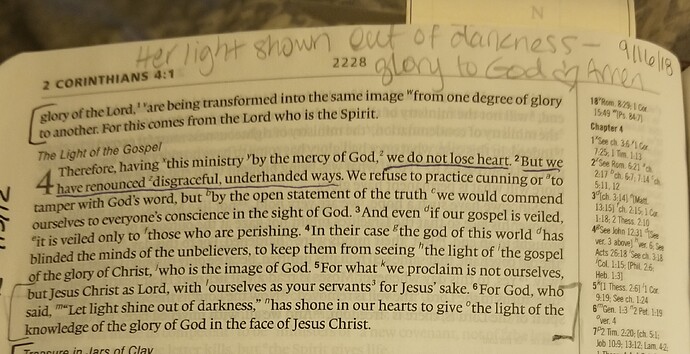 N
Her light shown out of darkness –
glory to God & Amen
9/16/18
2 CORINTHIANS 4:1
2228
glory of the Lord, are being transformed into the same image ʷfrom one degree of glory
to another. For this comes from the Lord who is the Spirit.
The Light of the Gospel
4 Therefore, having ˣthis ministry ʸby the mercy of God,ᶻ we do not lose heart. ²But we
have renounced ᶻdisgraceful, underhanded ways. We refuse to practice cunning or ᵃto
tamper with God's word, but ᵇby the open statement of the truth ᶜwe would commend
ourselves to everyone's conscience in the sight of God. ³And even ᵈif our gospel is veiled,
ᵉit is veiled only to ᶠthose who are perishing. ⁴In their case ᵍthe god of this world ᵈhas
blinded the minds of the unbelievers, to keep them from seeing ʰthe light of ⁱthe gospel
of the glory of Christ, ʲwho is the image of God. ⁵For what ᵏwe proclaim is not ourselves,
but Jesus Christ as Lord, with ˡourselves as your servants³ for Jesus' sake. ⁶For God, who
said, ᵐ"Let light shine out of darkness," ⁿhas shone in our hearts to give ᵒthe light of the
knowledge of the glory of God in the face of Jesus Christ.
Treasure in Jars of Clay
18ʷRom. 8:29; 1 Cor.
15:49 ˣ[Ps. 84:7]
Chapter 4
1ˣSee ch. 3:6 ʸ1 Cor.
7:25; 1 Tim. 1:13
2ᶻSee Rom. 6:21 ᵃch.
2:17 ᵇch. 6:7; 7:14 ᶜch.
5:11, 12
3ᵈ[ch. 3:14] ᵉ[Matt.
13:15] ᶠch. 2:15; 1 Cor.
1:18; 2 Thess. 2:10
4ᵍSee John 12:31 ᵈ[See
ver. 3 above] ʰver. 6; See
Acts 26:18 ⁱSee ch. 3:18
ʲCol. 1:15; [Phil. 2:6;
Heb. 1:3]
5ᵏ[1 Thess. 2:6] ˡ1 Cor.
9:19; See ch. 1:24
6ᵐGen. 1:3 ⁿ2 Pet. 1:19
ᵒver. 4
7ᵖ2 Tim. 2:20; [ch. 5:1;
Job 10:9; 13:12; Lam. 4:2;